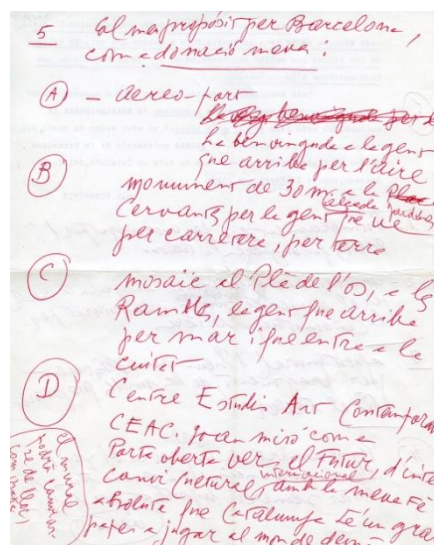 5 El meu propòsit per Barcelona,
com a donació meva:
A - aereo-port
la benvinguda a la gent
que arriba per l'aire
B monument de 30 m. a la
Cervantes per la gent que ve
per carretera, per terra
C mosaic al Pla de l'os, a les
Rambles, la gent que arriba
per mar i que entra a la
ciutat
D Centre Estudis Art Contempora
CEAC. Joan Miró com a
Porta oberta vers el Futur, d'inte
canvi cultural internacional, amb la meva Fè
absoluta que Catalunya té un gran
paper a jugar al mon de demà
el mural
podrà canviar
se de lloc,